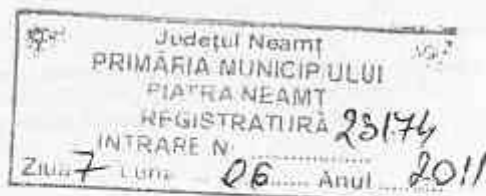 Județul Neamț
PRIMĂRIA MUNICIPIULUI
PIATRA NEAMȚ
REGISTRATURĂ 23174
INTRARE N
Ziua 7 Luna 06 Anul 2011